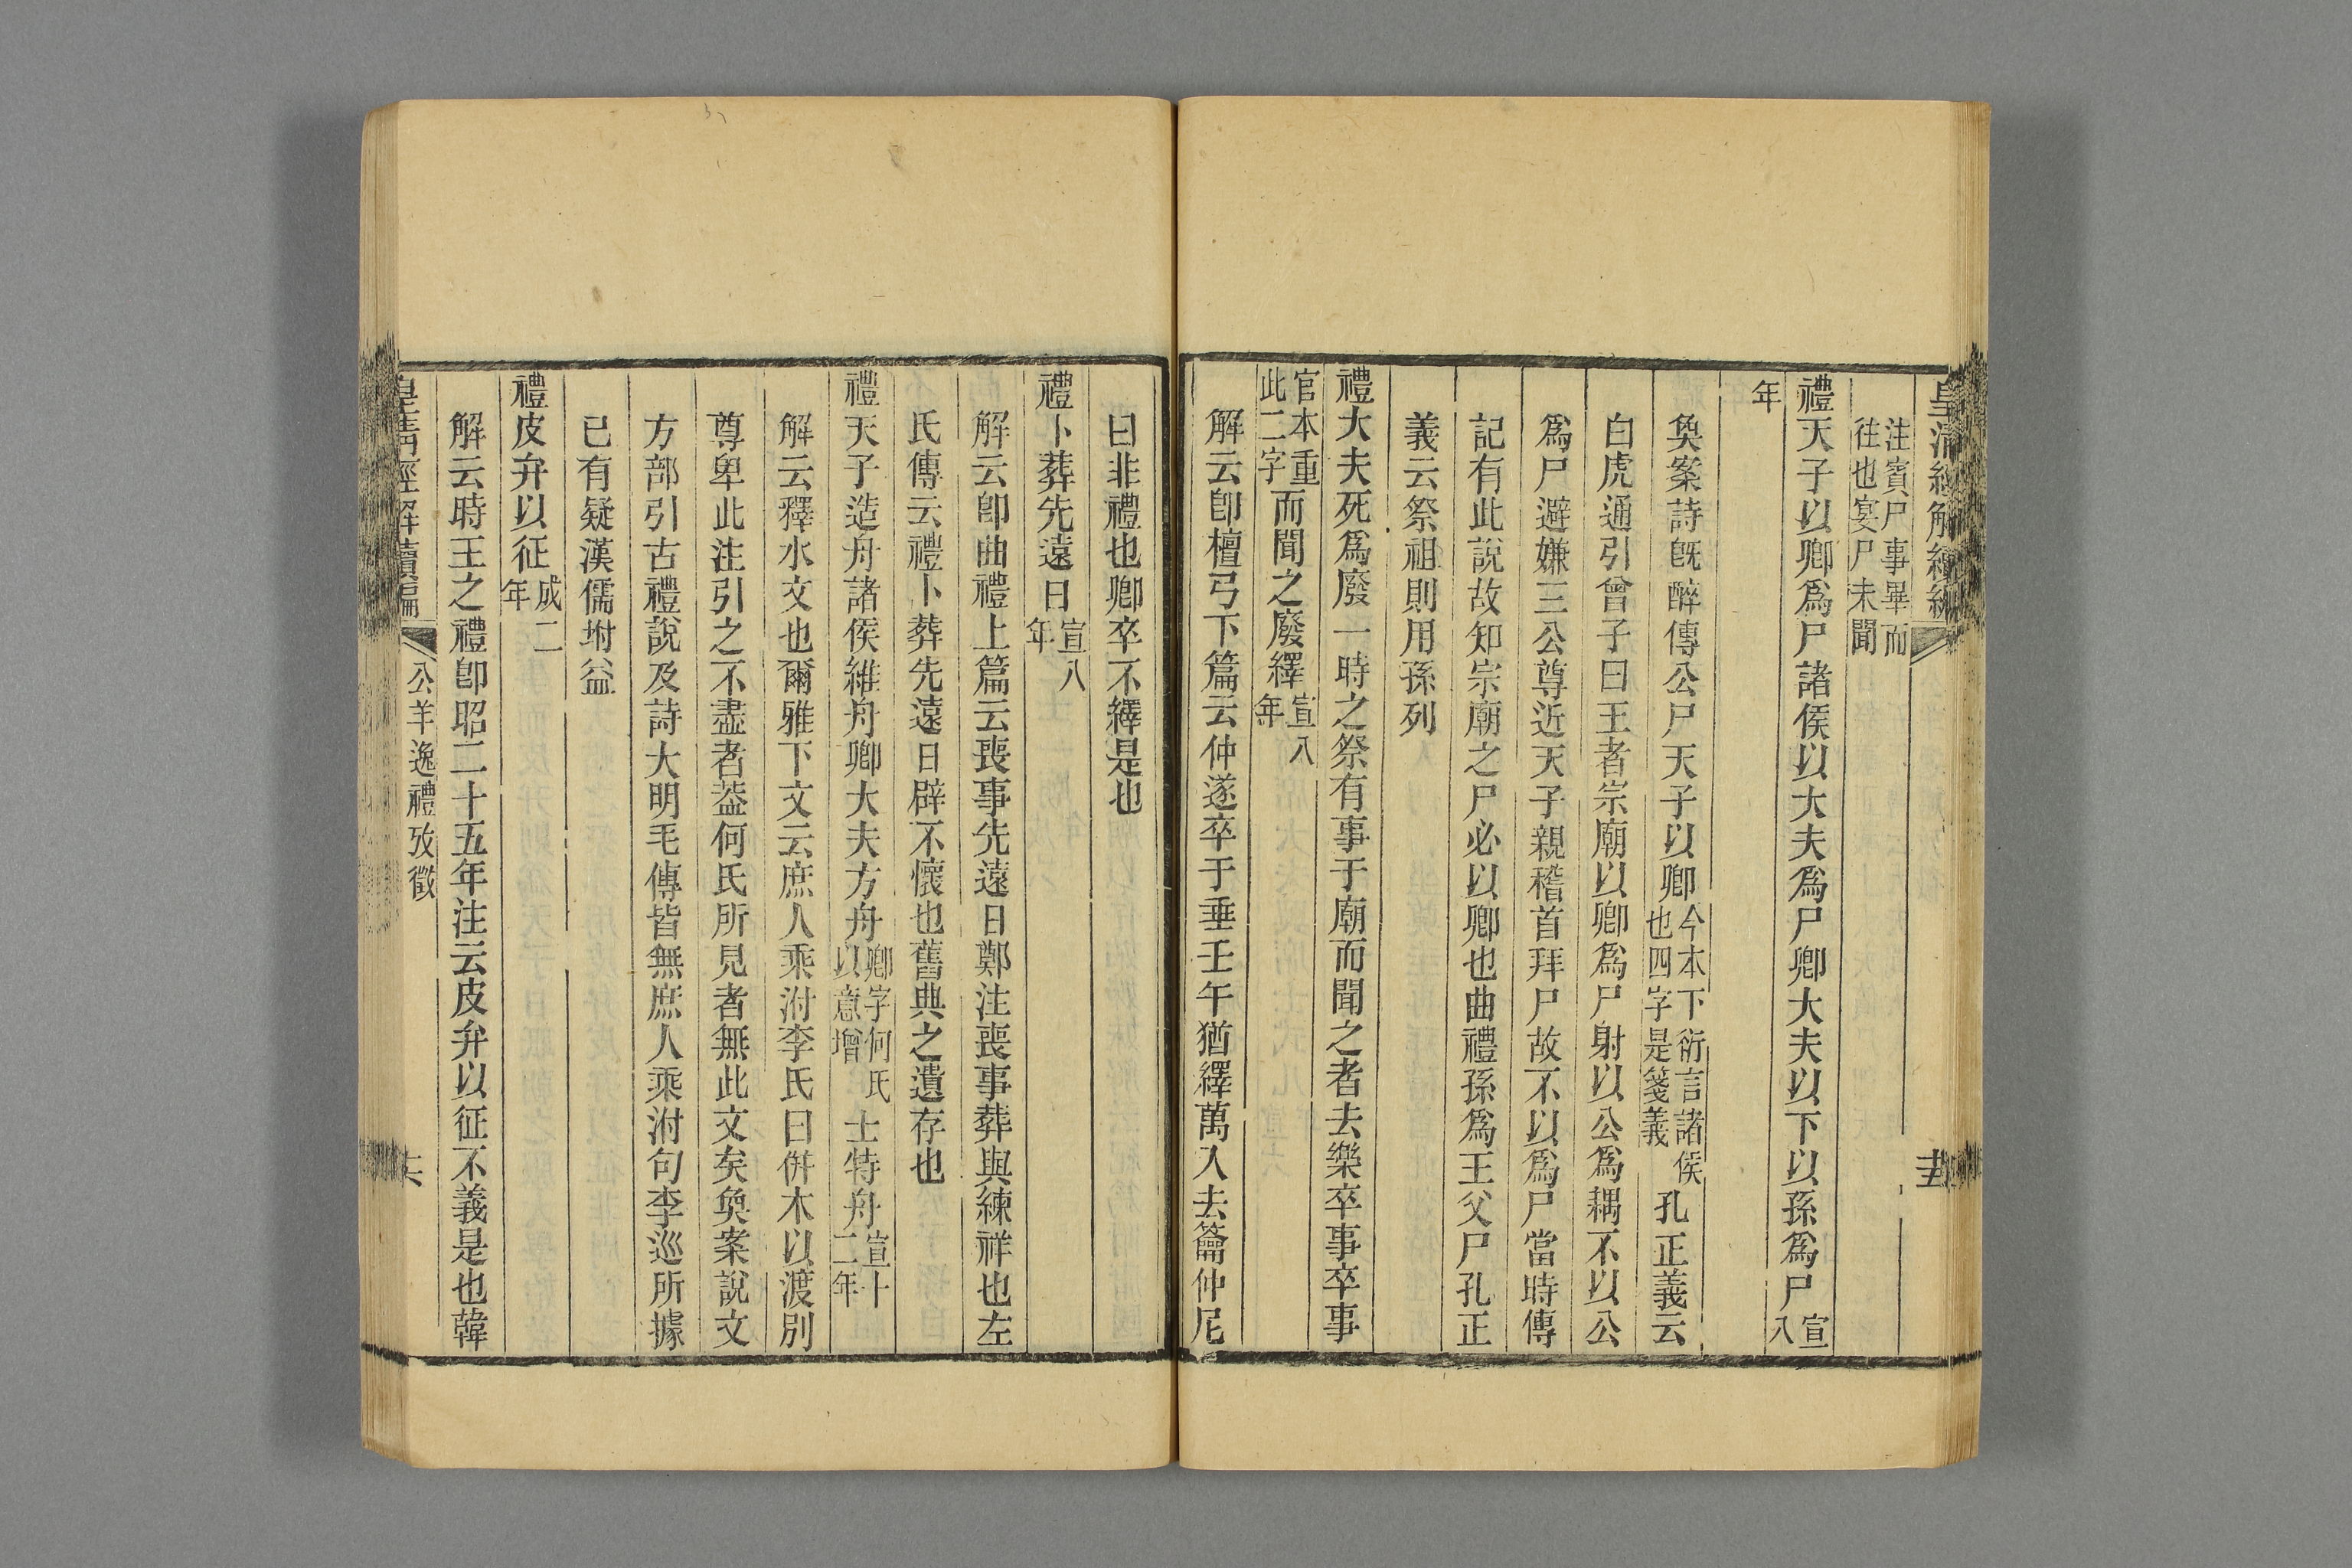 皇清經解續編
注賓尸事畢而往也宴尸未聞
禮天子以卿爲尸諸侯以大夫爲尸卿大夫以下以孫爲尸宣八
年
奐案詩旣醉傳公尸天子以卿今本下衍言諸侯也四字是箋義孔正義云
白虎通引曾子曰王者宗廟以卿爲尸射以公爲耦不以公
爲尸避嫌三公尊近天子親稽首拜尸故不以爲尸當時傳
記有此說故知宗廟之尸必以卿也曲禮孫爲王父尸孔正
義云祭祖則用孫列
禮大夫死爲廢一時之祭有事于廟而聞之者去樂卒事卒事
官本重此二字而聞之廢繹宣八年
解云卽檀弓下篇云仲遂卒于垂壬午猶繹萬入去籥仲尼
曰非禮也卿卒不繹是也
禮卜葬先遠日宣八年
解云卽曲禮上篇云喪事先遠日鄭注喪事葬與練祥也左
氏傳云禮卜葬先遠日辟不懷也舊典之遺存也
禮天子造舟諸侯維舟卿大夫方舟卿字何氏以意增士特舟宣十二年
解云釋水文也爾雅下文云庶人乘泭李氏曰併木以渡別
尊卑此注引之不盡者葢何氏所見者無此文矣奐案說文
方部引古禮說及詩大明毛傳皆無庶人乘泭句李巡所據
已有疑漢儒坿益
禮皮弁以征成二年
解云時王之禮卽昭二十五年注云皮弁以征不義是也韓
皇清經解續編 公羊逸禮攷徵